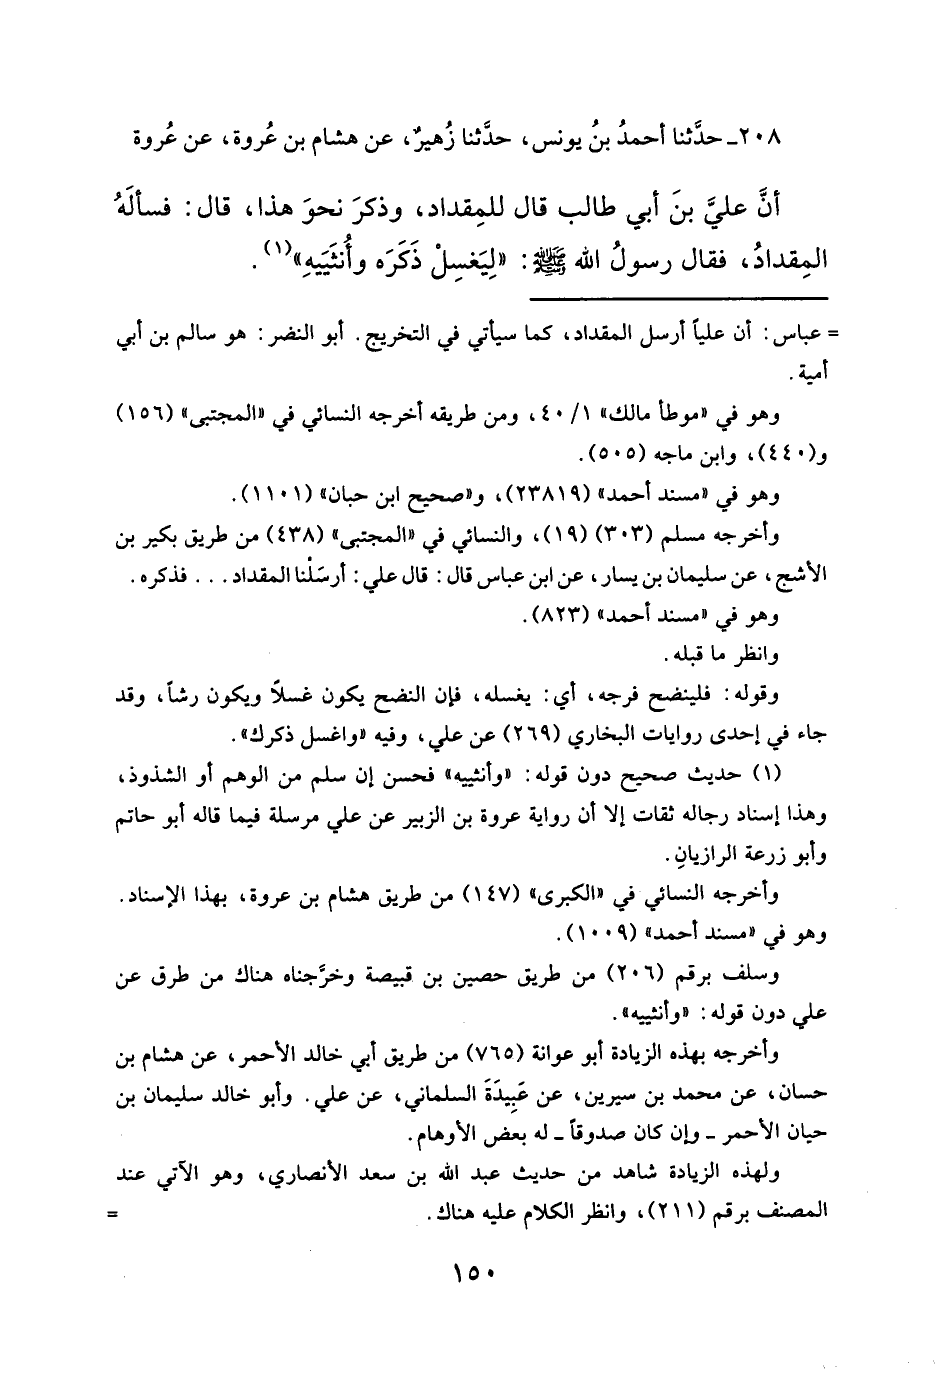 ٢٠٨ـ حدَّثنا أحمدُ بنُ يونس، حدَّثنا زُهيرٌ، عن هشام بن عُروة، عن عُروة
أنَّ عليَّ بنَ أبي طالب قال للمِقداد، وذكرَ نحوَ هذا، قال: فسألَهُ
المِقدادُ، فقال رسولُ الله ﷺ: «لِيَغسِلْ ذَكَرَه وأُنثَيَيهِ»(١).
= عباس: أن علياً أرسل المقداد، كما سيأتي في التخريج. أبو النضر: هو سالم بن أبي
أمية.
وهو في «موطأ مالك» ١/ ٤٠، ومن طريقه أخرجه النسائي في «المجتبى» (١٥٦)
و(٤٤٠)، وابن ماجه (٥٠٥).
وهو في «مسند أحمد» (٢٣٨١٩)، و«صحيح ابن حبان» (١١٠١).
وأخرجه مسلم (٣٠٣) (١٩)، والنسائي في «المجتبى» (٤٣٨) من طريق بكير بن
الأشج، عن سليمان بن يسار، عن ابن عباس قال: قال علي: أرسَلْنا المقداد... فذكره.
وهو في «مسند أحمد» (٨٢٣).
وانظر ما قبله.
وقوله: فلينضح فرجه، أي: يغسله، فإن النضح يكون غسلاً ويكون رشاً، وقد
جاء في إحدى روايات البخاري (٢٦٩) عن علي، وفيه «واغسل ذكرك».
(١) حديث صحيح دون قوله: «وأنثييه» فحسن إن سلم من الوهم أو الشذوذ،
وهذا إسناد رجاله ثقات إلا أن رواية عروة بن الزبير عن علي مرسلة فيما قاله أبو حاتم
وأبو زرعة الرازيانِ.
وأخرجه النسائي في «الكبرى» (١٤٧) من طريق هشام بن عروة، بهذا الإسناد.
وهو في «مسند أحمد» (١٠٠٩).
وسلف برقم (٢٠٦) من طريق حصين بن قبيصة وخرَّجناه هناك من طرق عن
علي دون قوله: «وأنثييه».
وأخرجه بهذه الزيادة أبو عوانة (٧٦٥) من طريق أبي خالد الأحمر، عن هشام بن
حسان، عن محمد بن سيرين، عن عَبِيدَةَ السلماني، عن علي. وأبو خالد سليمان بن
حيان الأحمر ـ وإن كان صدوقاً ـ له بعض الأوهام.
ولهذه الزيادة شاهد من حديث عبد الله بن سعد الأنصاري، وهو الآتي عند
المصنف برقم (٢١١)، وانظر الكلام عليه هناك. =
١٥٠